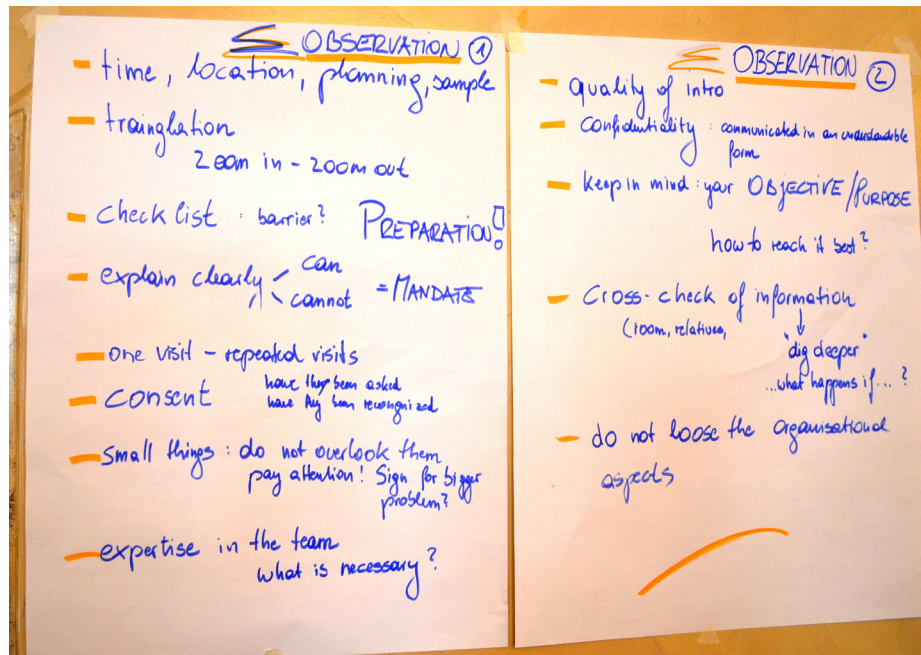 Σ OBSERVATION ①
- time, location, planning, sample
- trainglation
zoom in - zoom out
- check list : barrier? PREPARATION!
- explain clearly < can
cannot = MANDATE
- one visit - repeated visits
- consent have they been asked
have they been recongnized
- small things : do not overlook them
pay attention! Sign for bigger
problem?
- expertise in the team
what is necessary?
Σ OBSERVATION ②
- quality of intro
- confidentiality : communicated in an understandible
form
- keep in mind : your OBJECTIVE/PURPOSE
how to reach it best?
- cross-check of information
(room, relatives, ↓
"dig deeper"
...what happens if... ?
- do not loose the organisational
aspects